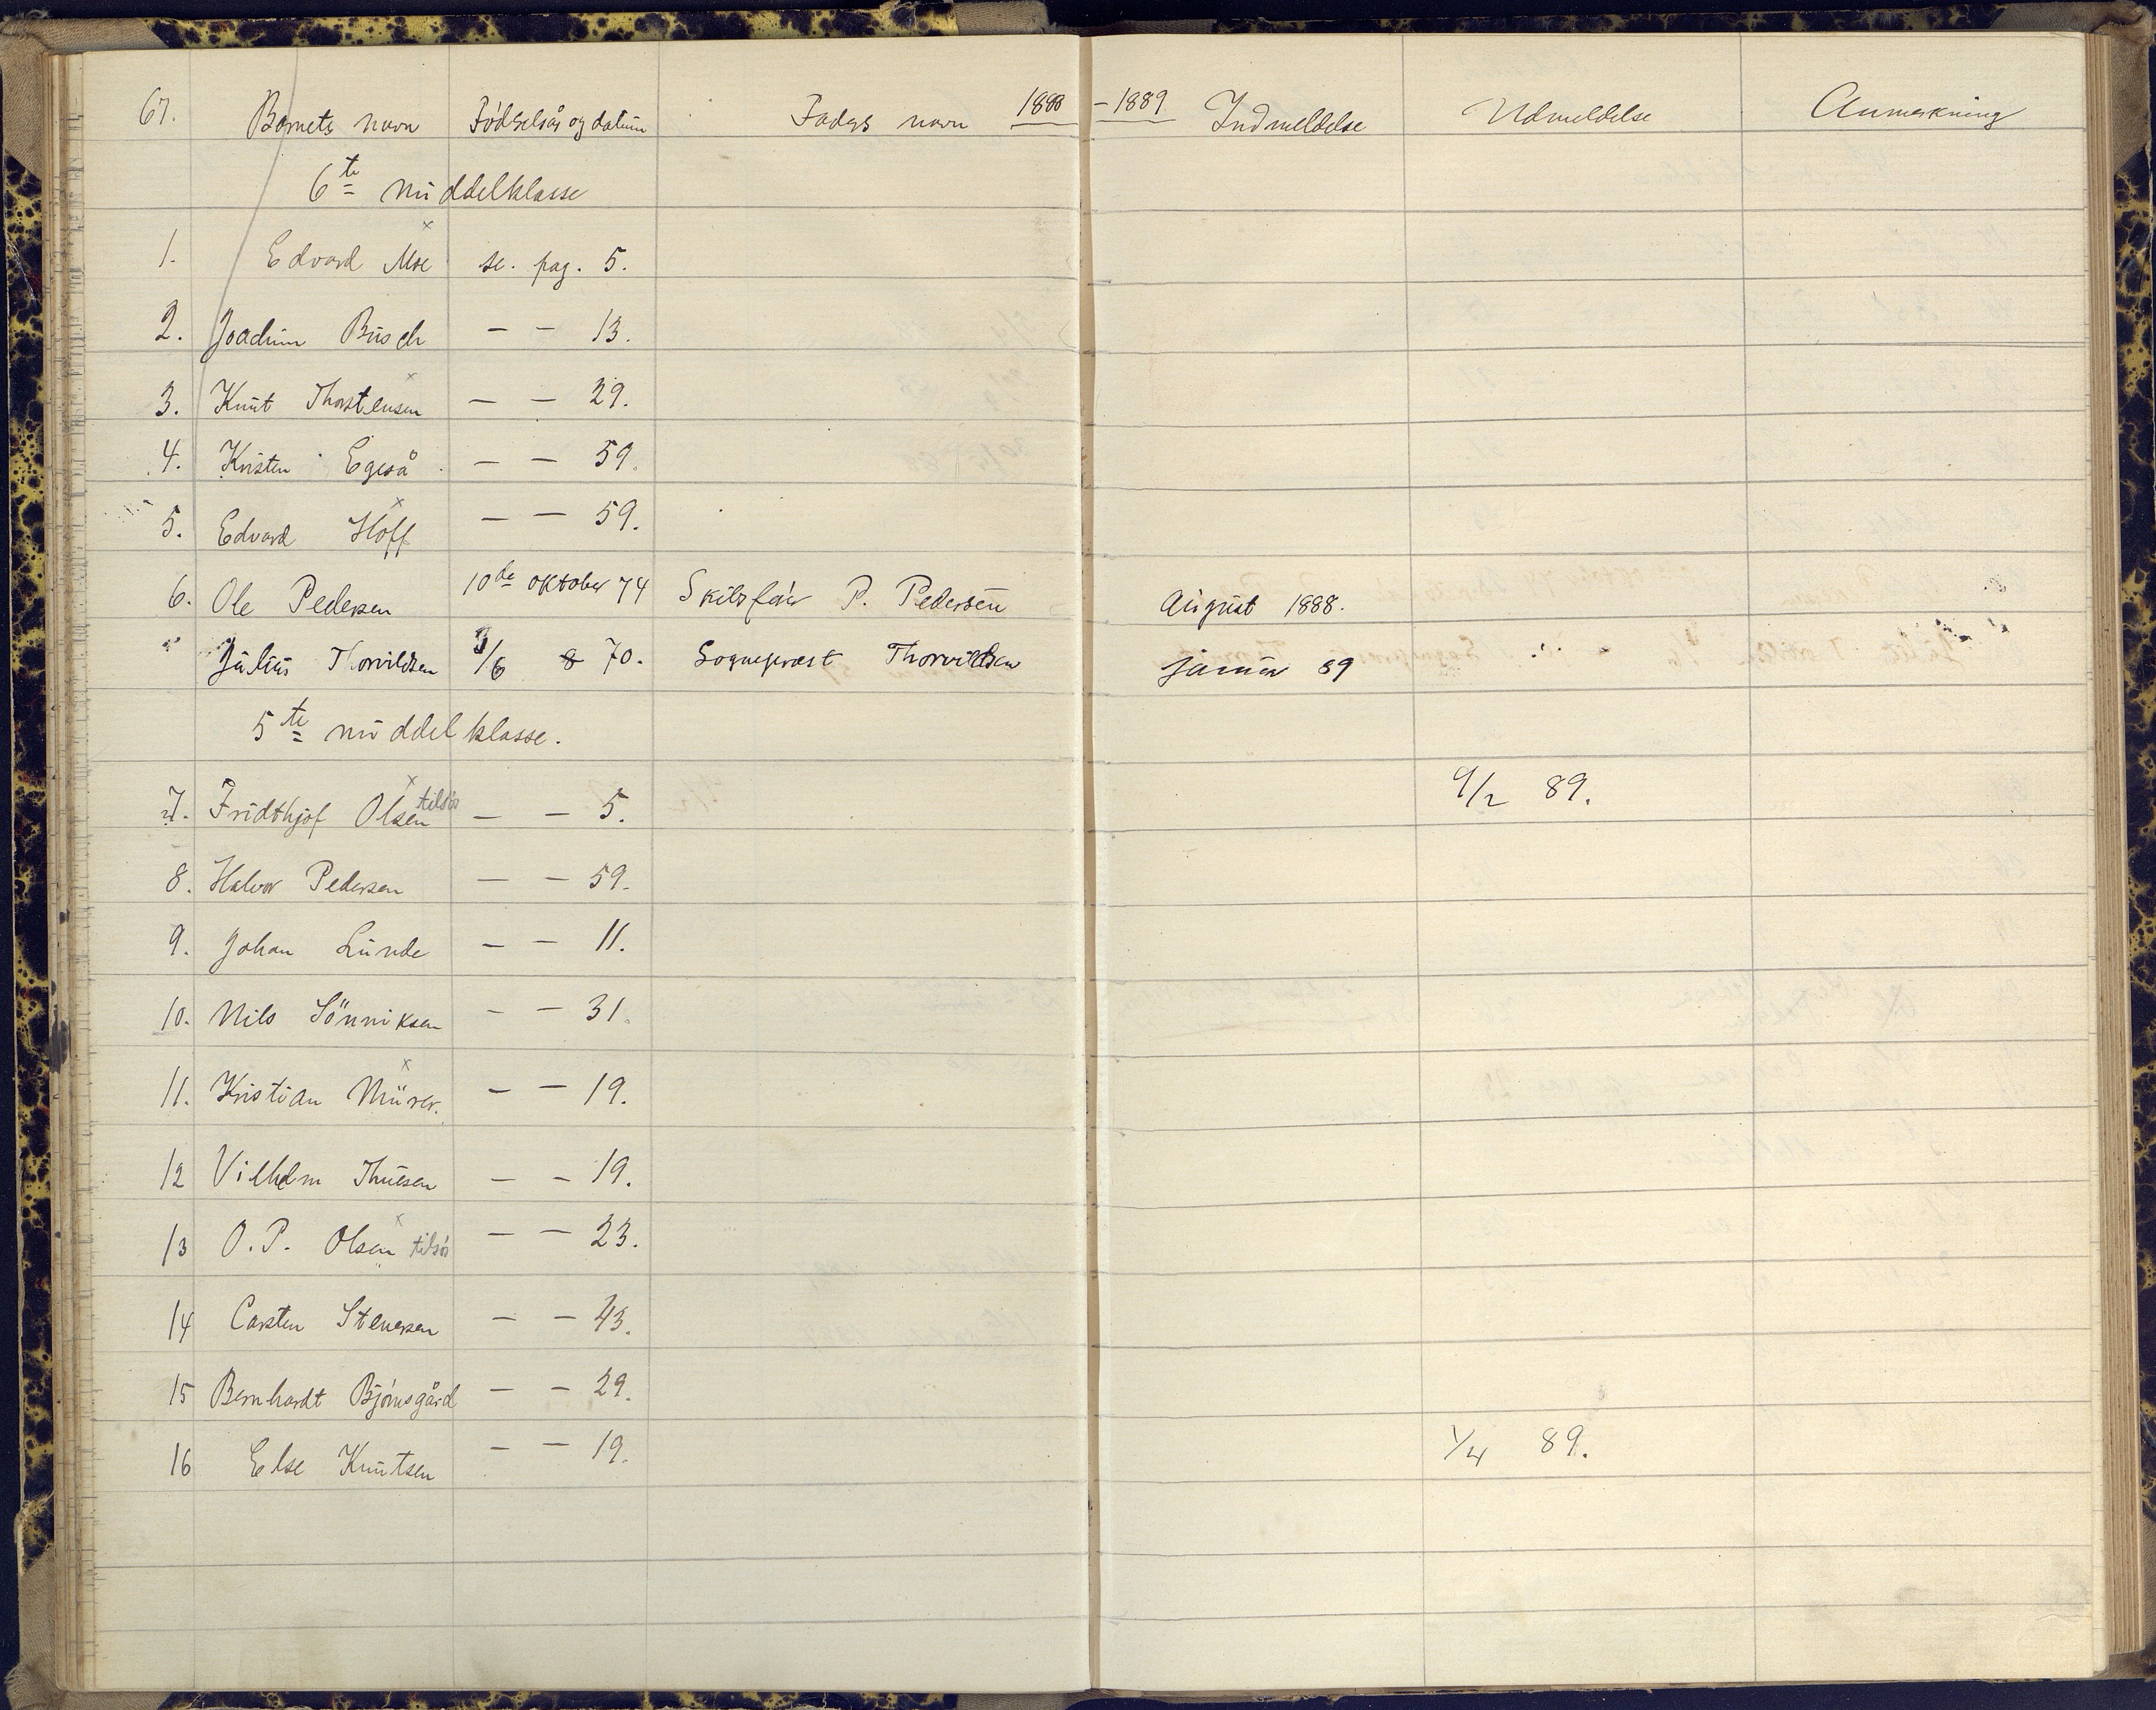 67. Barnets navn Fódselsår og datum Faders navn 1888 - 1889 Indmeldelse Udmeldelse Anmerkning
6te middelklasse
1. Edvard Moe x se. pag. 5.
2. Joachim Busch — — 13.
3. Knut Thorstensen x — — 29.
4. Kristen Egeså — — 59.
5. Edvard Hoff x — — 59.
6. Ole Pedersen 10de oktober 74 Skibsfór P. Pedersen August 1888.
Julius Thorvildsen 9/6 70. Sogneprest Thorvildsen januar 89
5te middelklasse.
7. Fridthjof Olsen x tilsós — — 5. 9/2 89.
8. Halvor Pedersen — — 59.
9. Johan Lunde — — 11.
10. Nils Sönniksen — — 31.
11. Kristian Mürer. x — — 19.
12 Vilhelm Thuesen — — 19.
13 O. P. Olsen x tilsós — — 23.
14 Carsten Stenersen — — 43.
15 Bernhardt Bjórnsgård — — 29.
16 Else Knutsen — — 19. 1/4 89.